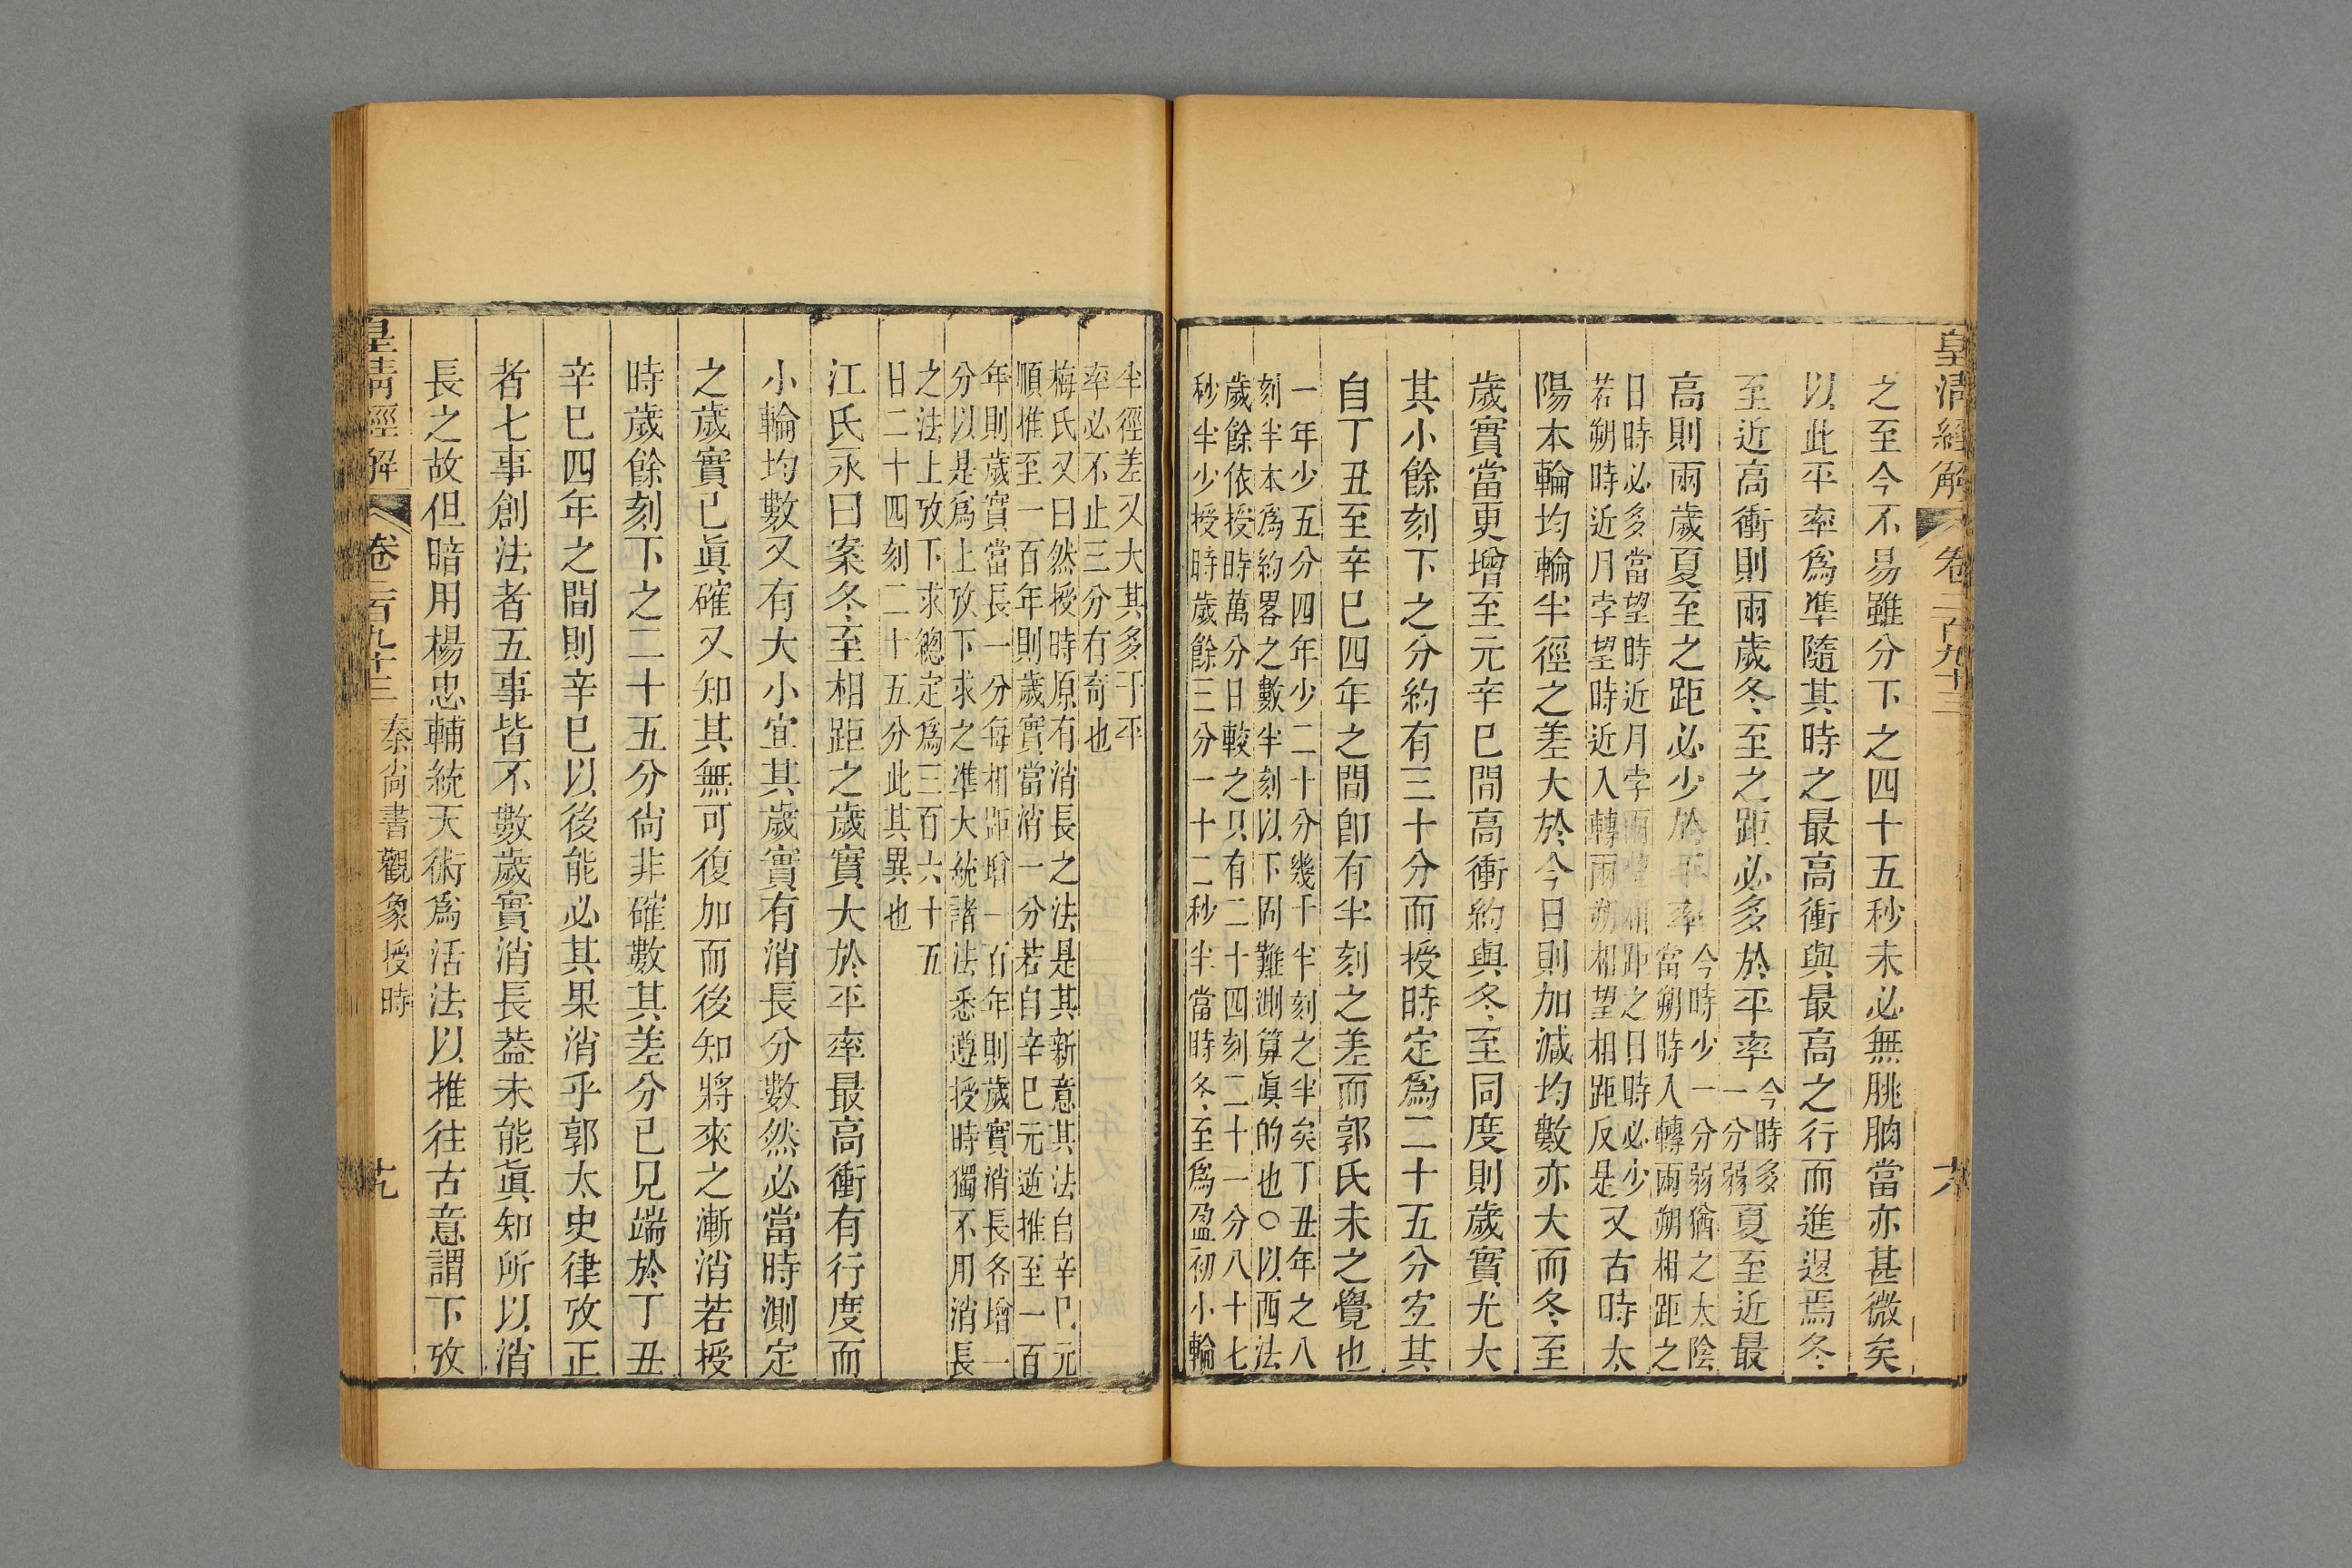 皇清經解 卷二百九十三 六
之至今不易雖分下之四十五秒未必無朓朒當亦甚微矣
以此平率爲準隨其時之最高衝與最高之行而進退焉冬
至近高衝則兩歲冬至之距必多於平率
今時多
一分弱
夏至近最
高則兩歲夏至之距必少於平率
今時少一分弱猶之太陰
當朔時入轉兩朔相距之
日時必多當望時近月孛兩望相距之日時必少
若朔時近月孛望時近入轉兩朔相望相距反是
又古時太
陽本輪均輪半徑之差大於今日則加減均數亦大而冬至
歲實當更增至元辛巳間高衝約與冬至同度則歲實尤大
其小餘刻下之分約有三十分而授時定爲二十五分宜其
自丁丑至辛巳四年之間卽有半刻之差而郭氏未之覺也
一年少五分四年少二十分幾于半刻之半矣丁丑年之八
刻半本爲約畧之數半刻以下固難測算眞的也○以西法
歲餘依授時萬分日較之只有二十四刻二十一分八十七
秒半少授時歲餘三分一十二秒半當時冬至爲盈初小輪
半徑差又大其多于平
率必不止三分有奇也
梅氏又曰然授時原有消長之法是其新意其法自辛巳元
順推至一百年則歲實當消一分若自辛巳元逆推至一百
年則歲實當長一分每相距增一百年則歲實消長各增一
分以是爲上攷下求之準大統諸法悉遵授時獨不用消長
之法上攷下求總定爲三百六十五
日二十四刻二十五分此其異也
江氏永曰案冬至相距之歲實大於平率最高衝有行度而
小輪均數又有大小宜其歲實有消長分數然必當時測定
之歲實已眞確又知其無可復加而後知將來之漸消若授
時歲餘刻下之二十五分尙非確數其差分已見端於丁丑
辛巳四年之間則辛巳以後能必其果消乎郭太史律攷正
者七事創法者五事皆不數歲實消長葢未能眞知所以消
長之故但暗用楊忠輔統天術爲活法以推往古意謂下攷
皇清經解 卷二百九十三 秦尙書觀象授時